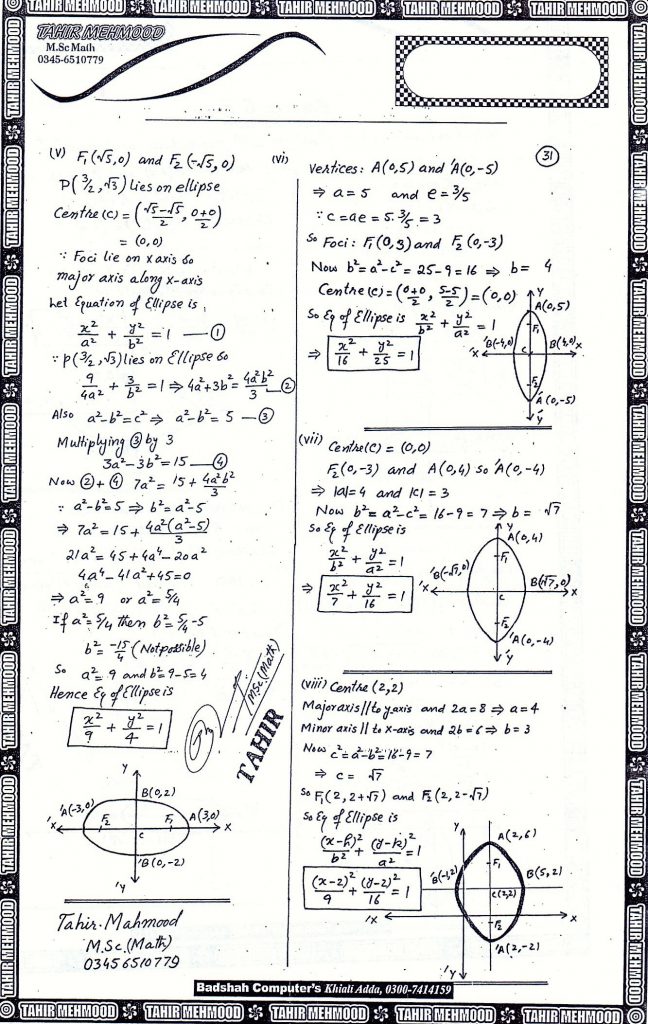 TAHIR MEHMOOD TAHIR MEHMOOD TAHIR MEHMOOD TAHIR MEHMOOD TAHIR MEHMOOD
TAHIR MEHMOOD
M.Sc Math
0345-6510779
31
(v) F₁(√5,0) and F₂(-√5,0)
P(3/2, √3) lies on ellipse
Centre(c) = ((√5-√5)/2, (0+0)/2)
= (0,0)
∵ Foci lie on x axis so
major axis along x-axis
Let Equation of Ellipse is,
x²/a² + y²/b² = 1 — ①
∵ P(3/2, √3) lies on Ellipse so
9/4a² + 3/b² = 1 ⇒ 4a²+3b² = 4a²b²/3 — ②
Also a²-b²=c² ⇒ a²-b² = 5 — ③
Multiplying ③ by 3
3a²-3b²=15 — ④
Now ②+④ 7a² = 15 + 4a²b²/3
∵ a²-b²=5 ⇒ b²=a²-5
⇒ 7a² = 15 + 4a²(a²-5)/3
21a² = 45+4a⁴-20a²
4a⁴-41a²+45=0
⇒ a²=9 or a²=5/4
If a²=5/4 then b²=5/4-5
b² = -15/4 (Not possible)
So a²=9 and b²=9-5=4
Hence Eq of Ellipse is
x²/9 + y²/4 = 1
M.Sc (Math)
TAHIR
Y
B(0,2)
'A(-3,0)
A(3,0)
'X F₂ C F₁ X
'B(0,-2)
'Y
Tahir. Mahmood
M.Sc.(Math)
0345 6510779
(vi)
Vertices: A(0,5) and 'A(0,-5)
⇒ a=5 and e=3/5
∵ c=ae = 5.3/5 = 3
So Foci: F₁(0,3) and F₂(0,-3)
Now b²=a²-c² = 25-9=16 ⇒ b= 4
Centre(c) = ((0+0)/2, (5-5)/2) = (0,0)
So Eq of Ellipse is x²/b² + y²/a² = 1
⇒ x²/16 + y²/25 = 1
Y
A(0,5)
F₁
'B(-4,0) B(4,0)
'X C X
F₂
'A(0,-5)
'Y
(vii) Centre(c) = (0,0)
F₂(0,-3) and A(0,4) so 'A(0,-4)
⇒ |a|=4 and |c|=3
Now b²=a²-c²=16-9=7 ⇒ b= √7
So Eq of Ellipse is
x²/b² + y²/a² = 1
⇒ x²/7 + y²/16 = 1
Y
A(0,4)
F₁
'B(-√7,0) B(√7,0)
'X C X
F₂
'A(0,-4)
'Y
(viii) Centre (2,2)
Major axis || to y axis and 2a=8 ⇒ a=4
Minor axis || to x-axis and 2b=6 ⇒ b=3
Now c²=a²-b²=16-9=7
⇒ c= √7
So F₁(2,2+√7) and F₂(2,2-√7)
So Eq of Ellipse is
(x-h)²/b² + (y-k)²/a² = 1
(x-2)²/9 + (y-2)²/16 = 1
Y
A(2,6)
F₁
'B(-1,2) B(5,2)
C(2,2)
F₂
'X X
'A(2,-2)
'Y
Badshah Computer's Khiali Adda, 0300-7414159
TAHIR MEHMOOD TAHIR MEHMOOD TAHIR MEHMOOD TAHIR MEHMOOD TAHIR MEHMOOD